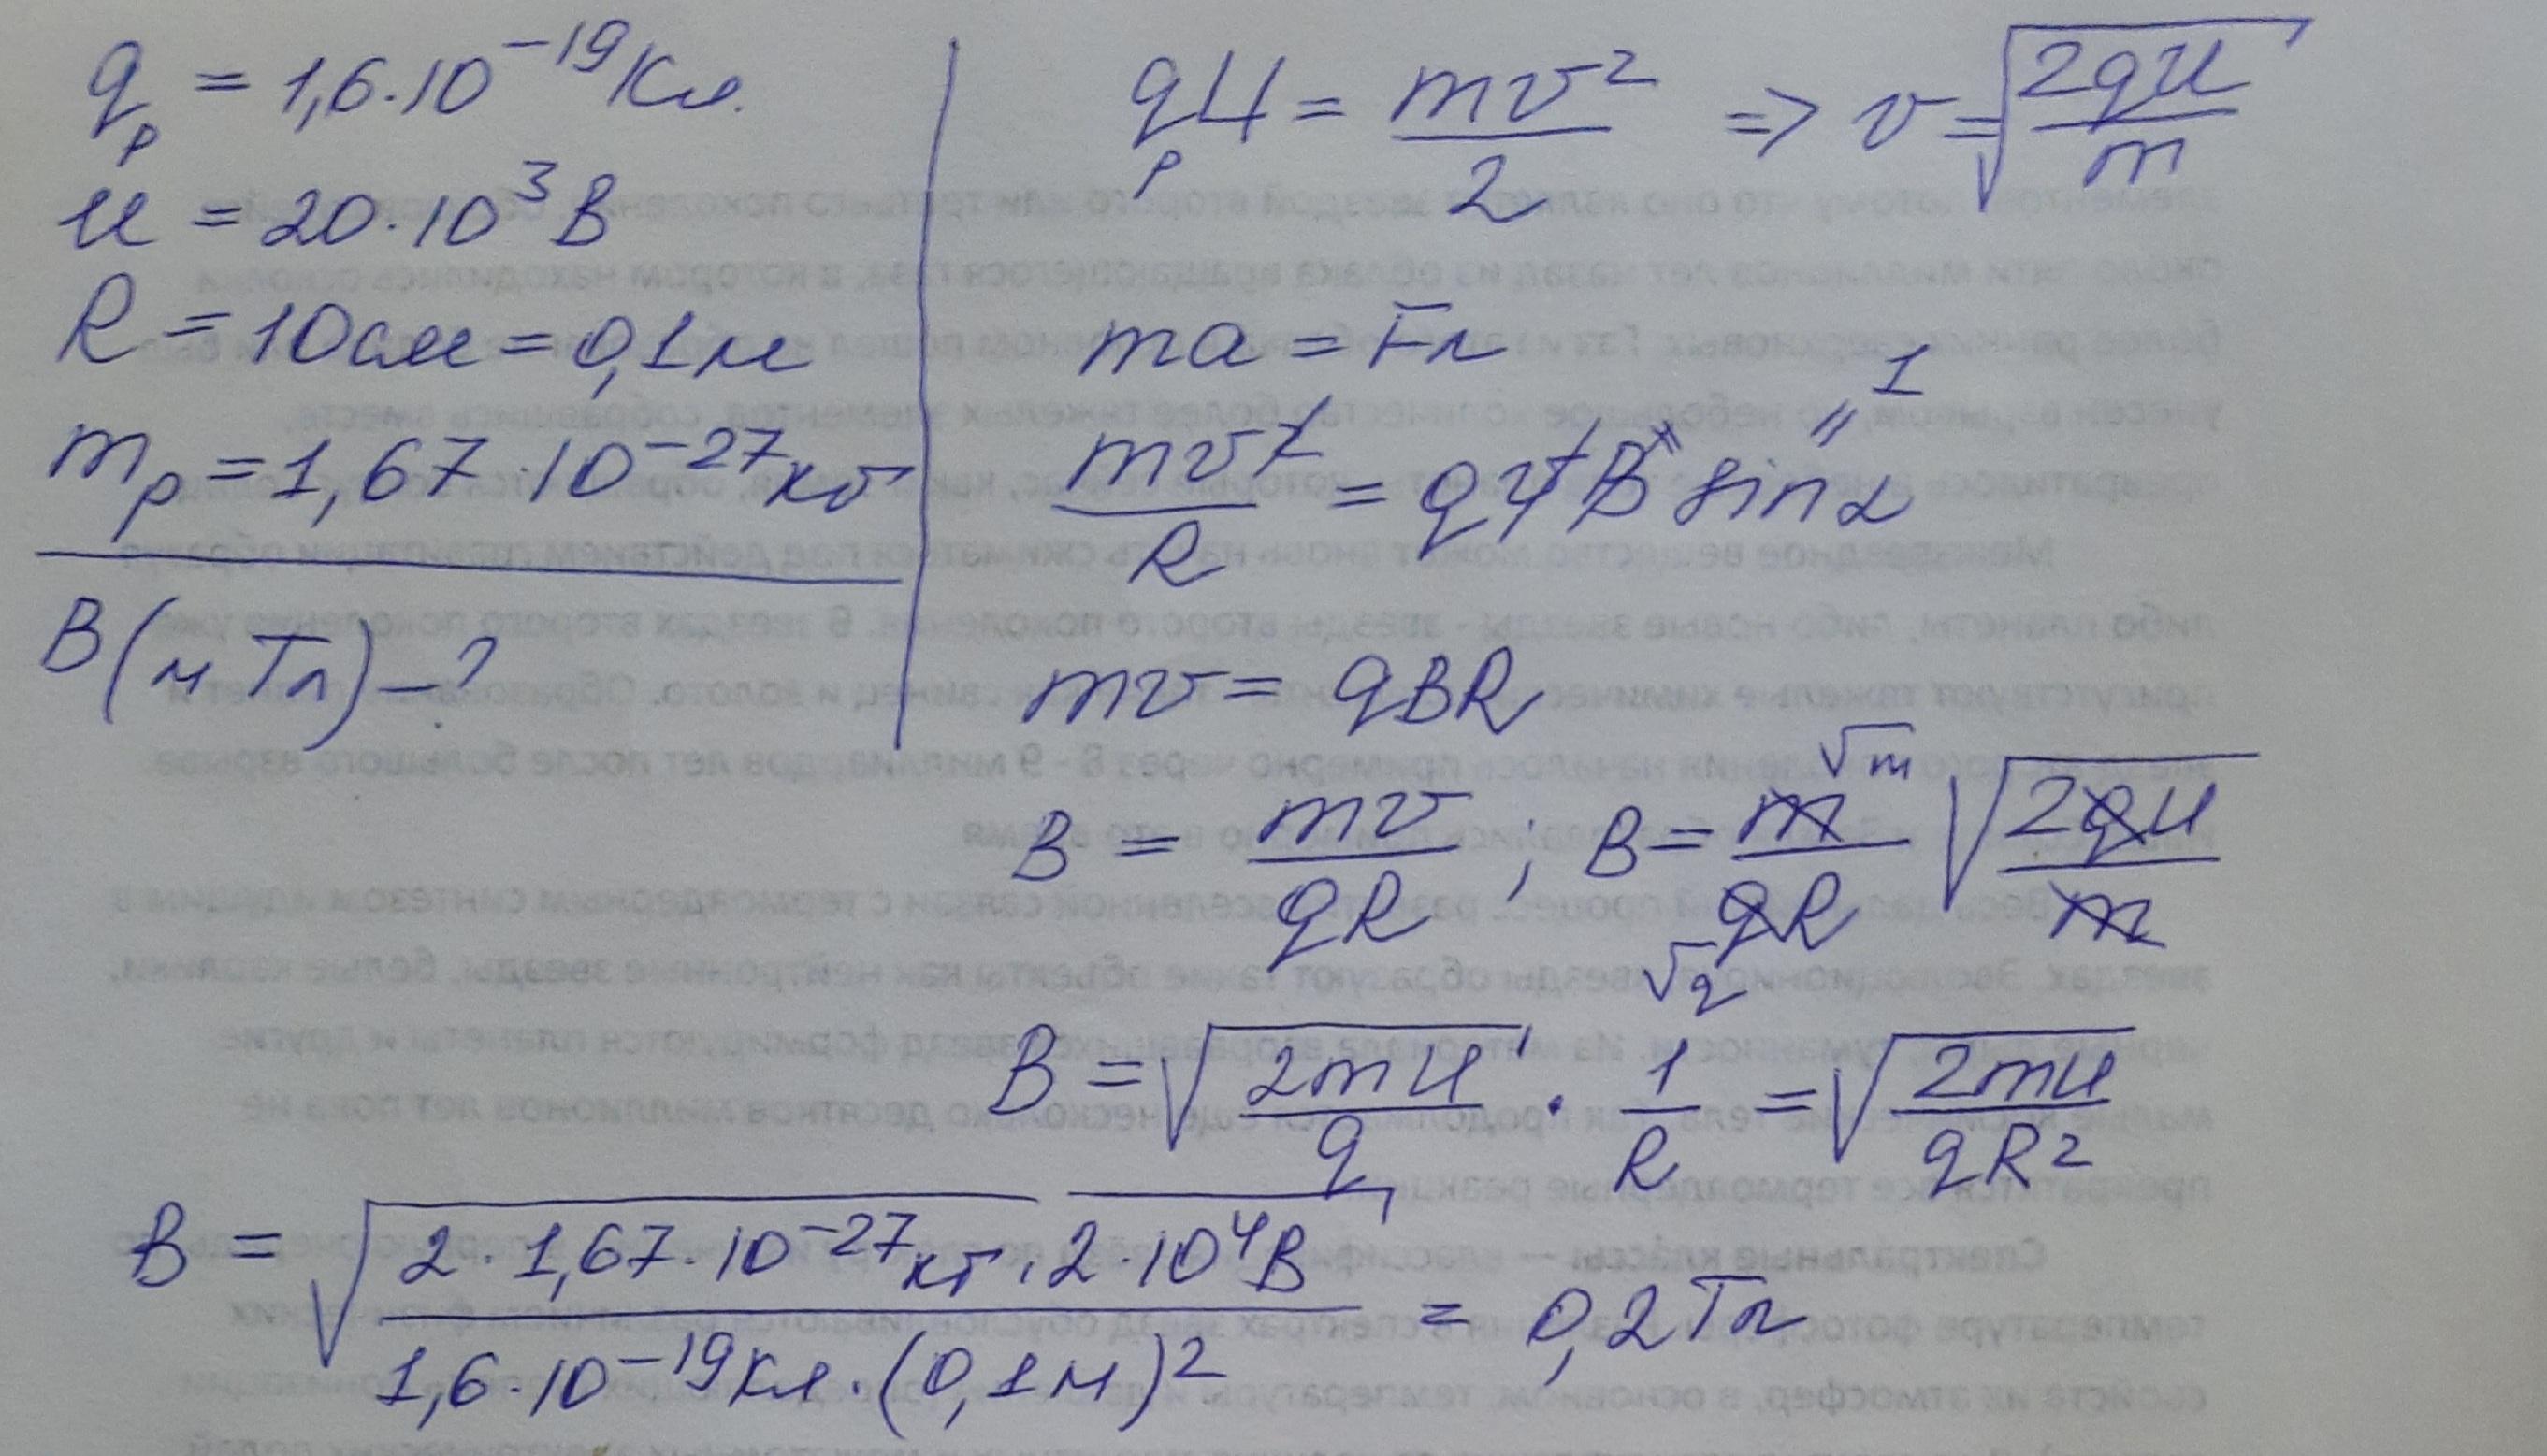 qp = 1,6·10⁻¹⁹ Кл.
U = 20·10³ В
R = 10 см = 0,1 м
mp = 1,67·10⁻²⁷ кг
B (мТл) – ?
qpU = mv²/2 => v = √(2qU/m)
ma = Fл
mv²/R = qvB sinα = 1
mv = qBR
B = mv/qR ; B = m/qR √(2qU/m) √m √q
B = √(2mU/q) · 1/R = √(2mU/qR²)
B = √(2·1,67·10⁻²⁷ кг · 2·10⁴ В / 1,6·10⁻¹⁹ Кл · (0,1 м)²) = 0,2 Тл